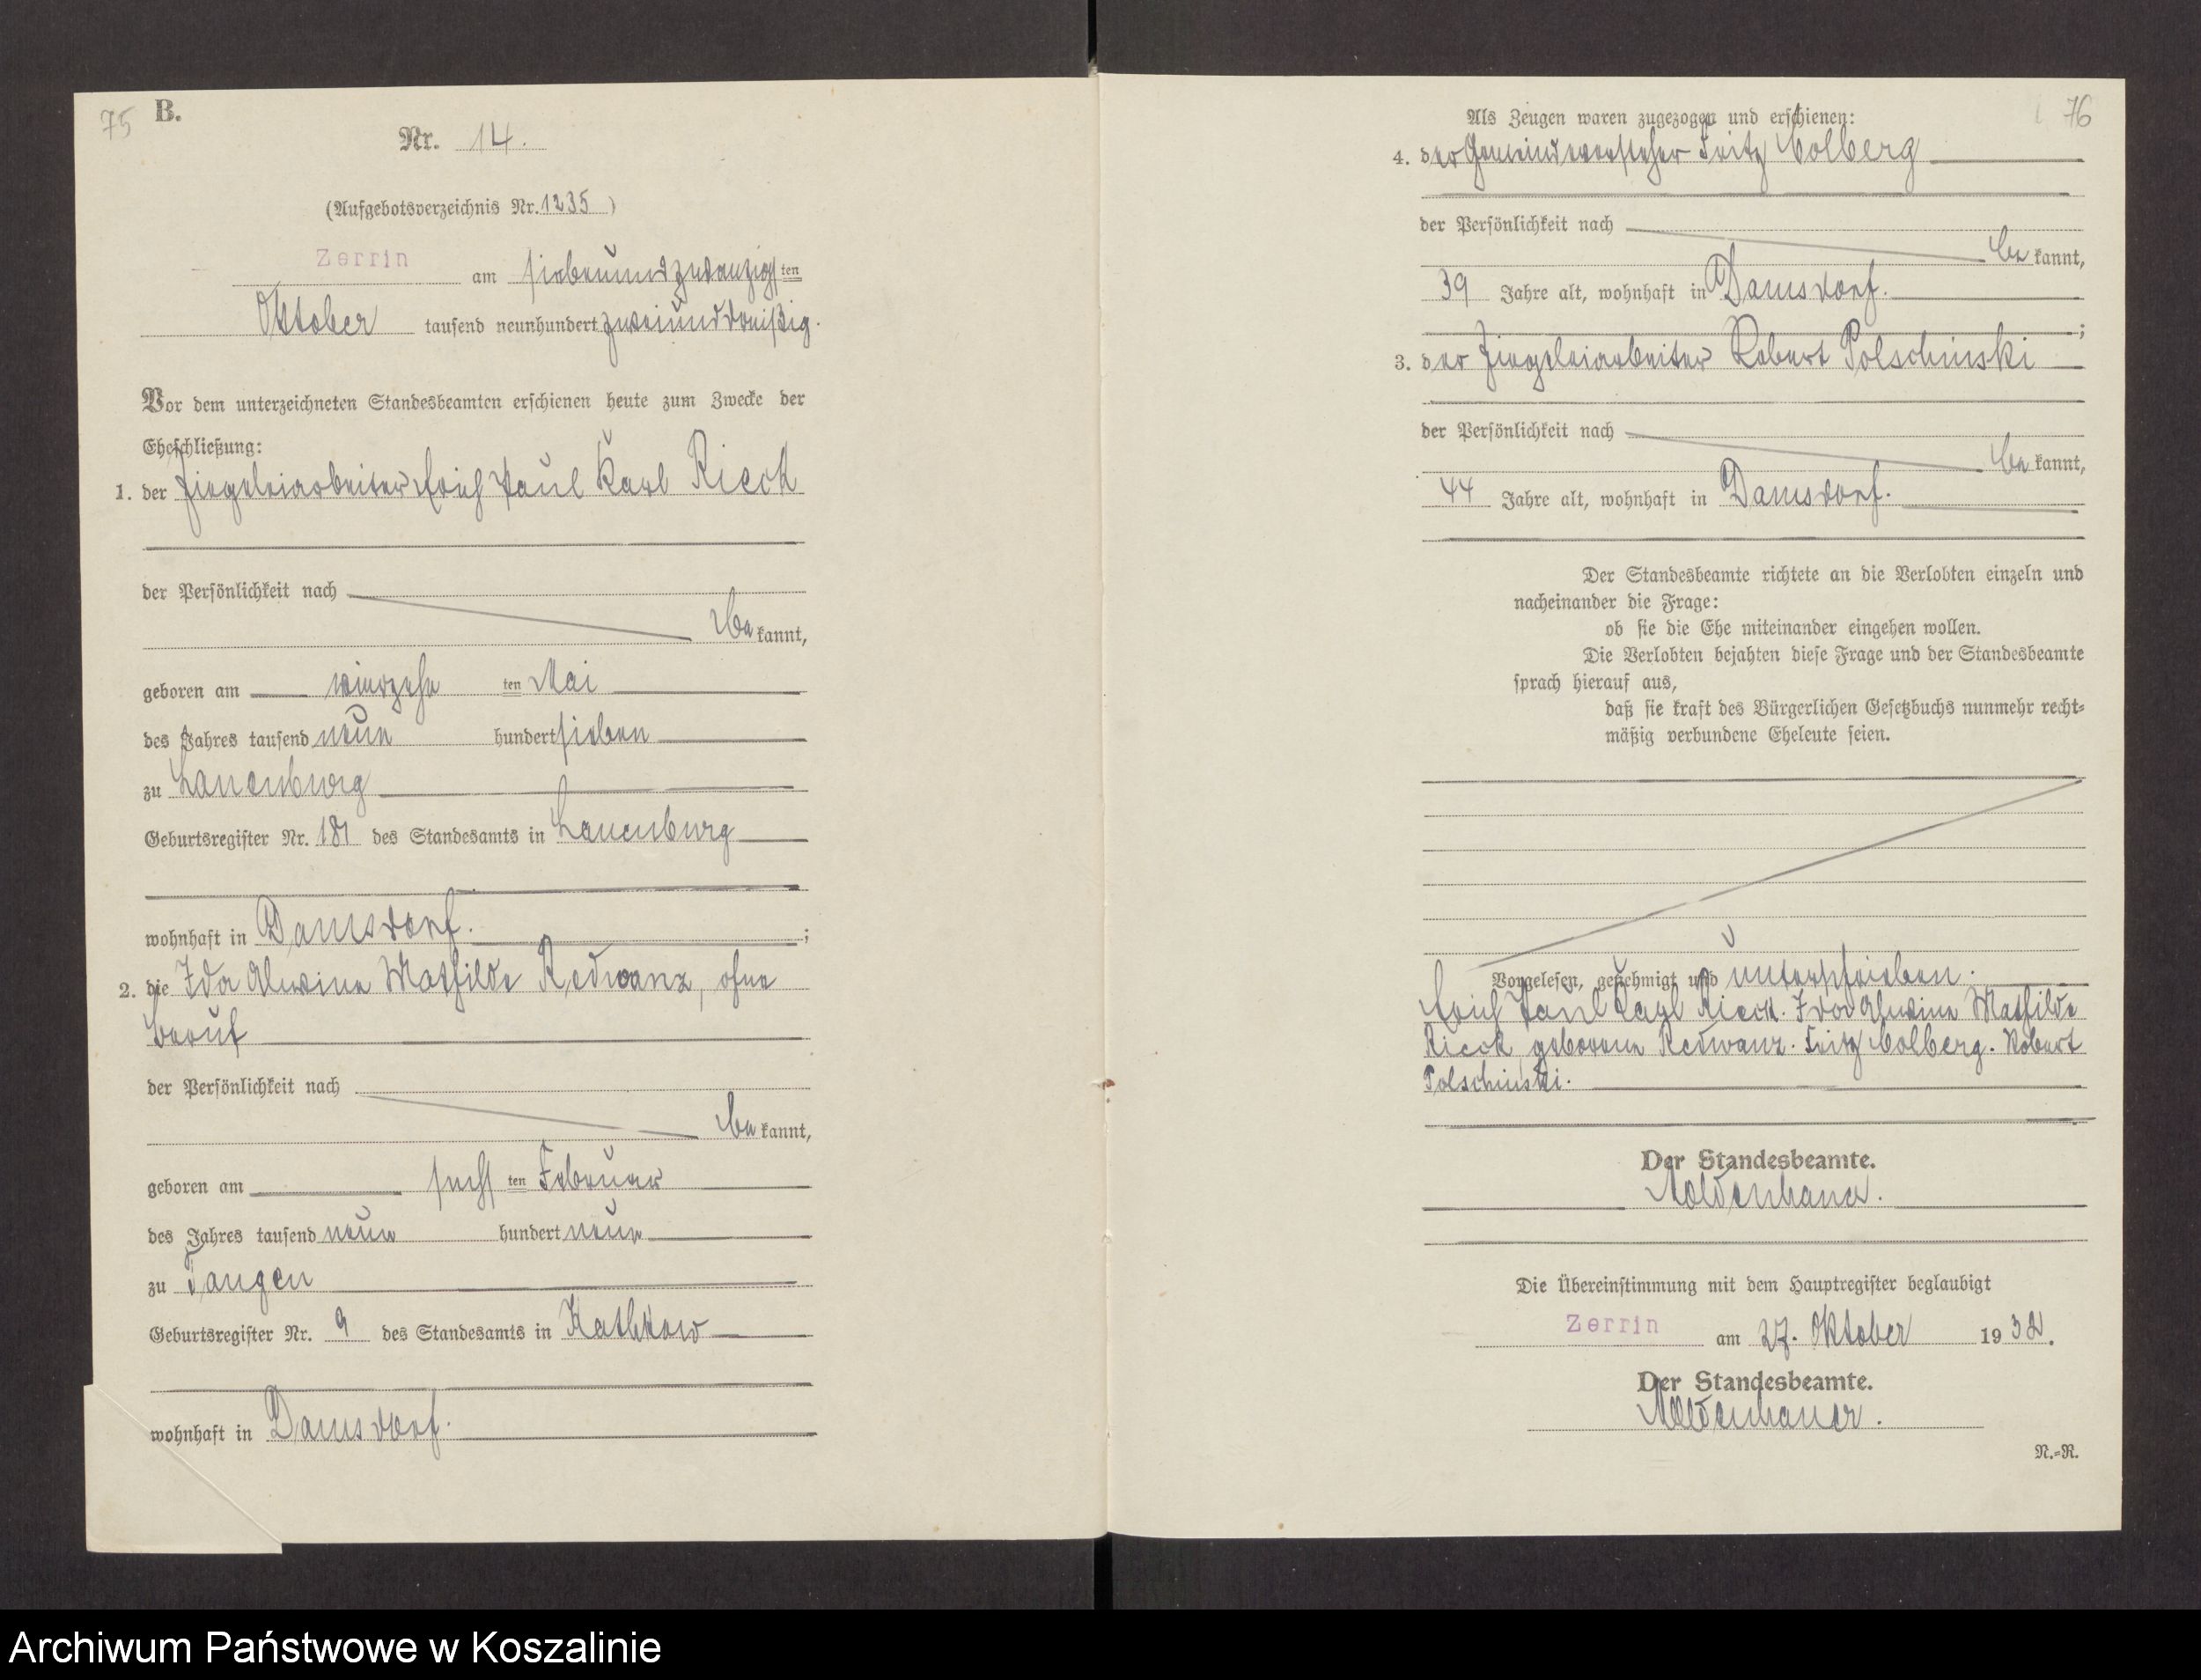 75
B.
Nr. 14.
(Aufgebotsverzeichnis Nr. 1235)
Zerrin am siebenundzwanzigsten
Oktober tausend neunhundert zweiunddreißig.
Vor dem unterzeichneten Standesbeamten erschienen heute zum Zwecke der
Eheschließung:
1. der Ziegeleiarbeiter Erich Paul Karl Rieck
der Persönlichkeit nach
bekannt,
geboren am vierzehnten Mai
des Jahres tausend neun hundert sieben
zu Lauenburg
Geburtsregister Nr. 181 des Standesamts in Lauenburg
wohnhaft in Damsdorf. ;
2. die Ida Alwine Mathilde Redwanz, ohne
Beruf
der Persönlichkeit nach
bekannt,
geboren am sechsten Februar
des Jahres tausend neun hundert neun
zu Tangen
Geburtsregister Nr. 9 des Standesamts in Kathkow
wohnhaft in Damsdorf.
76
Als Zeugen waren zugezogen und erschienen:
4. der Gemeindevorsteher Fritz Colberg
der Persönlichkeit nach
bekannt,
39 Jahre alt, wohnhaft in Damsdorf.
;
3. der Ziegeleiarbeiter Robert Polschinski
der Persönlichkeit nach
bekannt,
44 Jahre alt, wohnhaft in Damsdorf.
Der Standesbeamte richtete an die Verlobten einzeln und
nacheinander die Frage:
ob sie die Ehe miteinander eingehen wollen.
Die Verlobten bejahten diese Frage und der Standesbeamte
sprach hierauf aus,
daß sie kraft des Bürgerlichen Gesetzbuchs nunmehr recht-
mäßig verbundene Eheleute seien.
Vorgelesen, genehmigt und unterschrieben.
Erich Paul Karl Rieck. Ida Alwine Mathilde
Rieck geborene Redwanz. Fritz Colberg. Robert
Polschinski.
Der Standesbeamte.
Moldenhauer.
Die Übereinstimmung mit dem Hauptregister beglaubigt
Zerrin am 27. Oktober 1932.
Der Standesbeamte.
Moldenhauer.
N.-R.
Archiwum Państwowe w Koszalinie